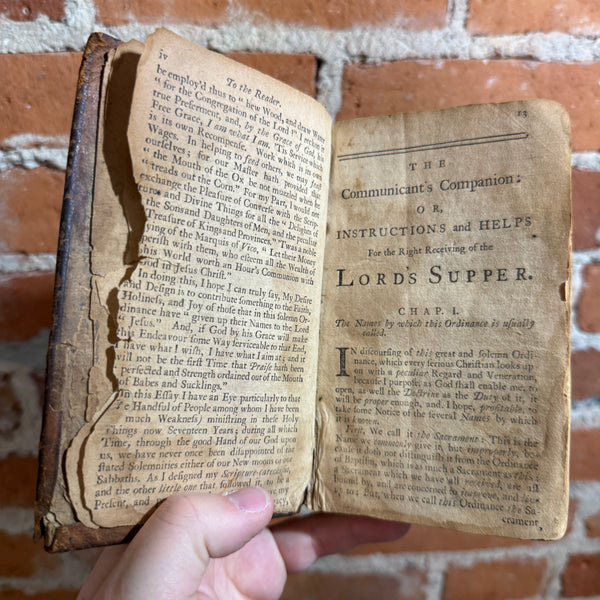 iv
To the Reader.
be employ'd thus to "hew Wood, and draw Water
"for the Congregation of the Lord": I reckon it
true Preferment, and, by the Grace of God, his
Free Grace, I am what I am. 'Tis Service which
is its own Recompense. Work which is its own
Wages. In helping to feed others, we may feast
ourselves; for our Master hath provided that
"the Mouth of the Ox be not muzzled when he
"treads out the Corn." For my Part, I would not
exchange the Pleasure of Converse with the Scrip-
tures and Divine Things for all the "Delights of
the Sons and Daughters of Men, and the peculiar
Treasure of Kings and Provinces." 'Twas a noble
ying of the Marquis of Vico, "Let their Money
perish with them, who esteem all the Wealth of
his World worth an Hour's Communion with
God in Jesus Christ."
In doing this, I hope I can truly say, My Desire
and Design is to contribute something to the Faith,
Holiness, and Joy of those that in this solemn Or-
dinance have "given up their Names to the Lord
"Jesus." And, if God by his Grace will make
this Endeavour some Way serviceable to that End,
I have what I wish, I have what I aim at; and it
will not be the first Time that Praise hath been
perfected and Strength ordained out of the Mouth
of Babes and Sucklings."
In this Essay I have an Eye particularly to that
Handful of People among whom I have been
much Weakness) ministring in these Holy
Things now Seventeen Years; during all which
Time, through the good Hand of our God upon
us, we have never once been disappointed of the
stated Solemnities either of our New moons or our
Sabbaths. As I designed my Scripture-catechism,
and the other little one that followed it, to be a
Present, and my
13
THE
Communicant's Companion:
OR,
INSTRUCTIONS and HELPS
For the Right Receiving of the
LORD'S SUPPER.
CHAP. I.
The Names by which this Ordinance is usually
called.
IN discoursing of this great and solemn Ordi-
nance, which every serious Christian looks up
on with a peculiar Regard and Veneration,
because I purpose, as God shall enable me, to
open, as well the Doctrine as the Duty of it, it
will be proper enough, and, I hope, profitable, to
take some Notice of the several Names by which
it is known.
First, We call it the Sacrament: This is the
Name we commonly give it, but improperly, be-
cause it doth not distinguish it from the Ordinance
of Baptism, which is as much a Sacrament as this:
a Sacrament which we have all received, are all
bound by, and are concerned to improve, and live
up to: But, when we call this Ordinance the Sa-
crament